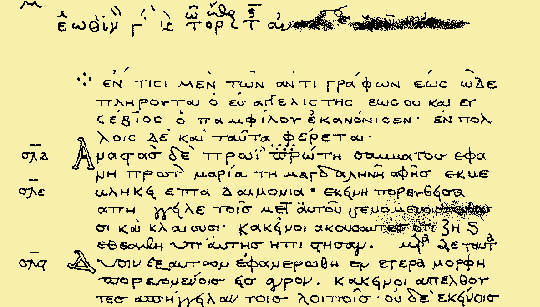 ἑωθιν γ´
ἔν τισι μὲν τῶν ἀντιγράφων ἕως ὧδε
πληροῦται ὁ εὐαγγελιστής ἕως οὗ καὶ εὐ
σέβιος ὁ παμφίλου ἐκανόνισεν· ἐν πολ
λοῖς δὲ καὶ ταῦτα φέρεται·
σλδ Ἀναστὰς δὲ πρωῒ πρώτη σαββάτου ἐφά
νη πρῶτον μαρία τῆ μαγδαληνῆ ἀφ' ἧς ἐκβε
σλε βλήκει ἑπτὰ δαιμόνια· ἐκείνη πορευθεῖσα
ἀπήγγειλε τοῖς μετ' αὐτοῦ γενομένοις πενθοῦ
σι καὶ κλαίουσι· κἀκεῖνοι ἀκούσαντες ὅτι ζῆ καὶ
ἐθεάθη ὑπ' αὐτῆς ἠπίστησαν· μετὰ δὲ ταῦτα
σλϛ Δυσὶν ἐξ αὐτῶν ἐφανερώθη ἐν ἑτέρα μορφῆ
πορευομένοις εἰς ἀγρόν. κἀκεῖνοι ἀπελθόν
τες ἀπήγγειλαν τοῖς λοιποῖς· οὐδὲ ἐκείνοις